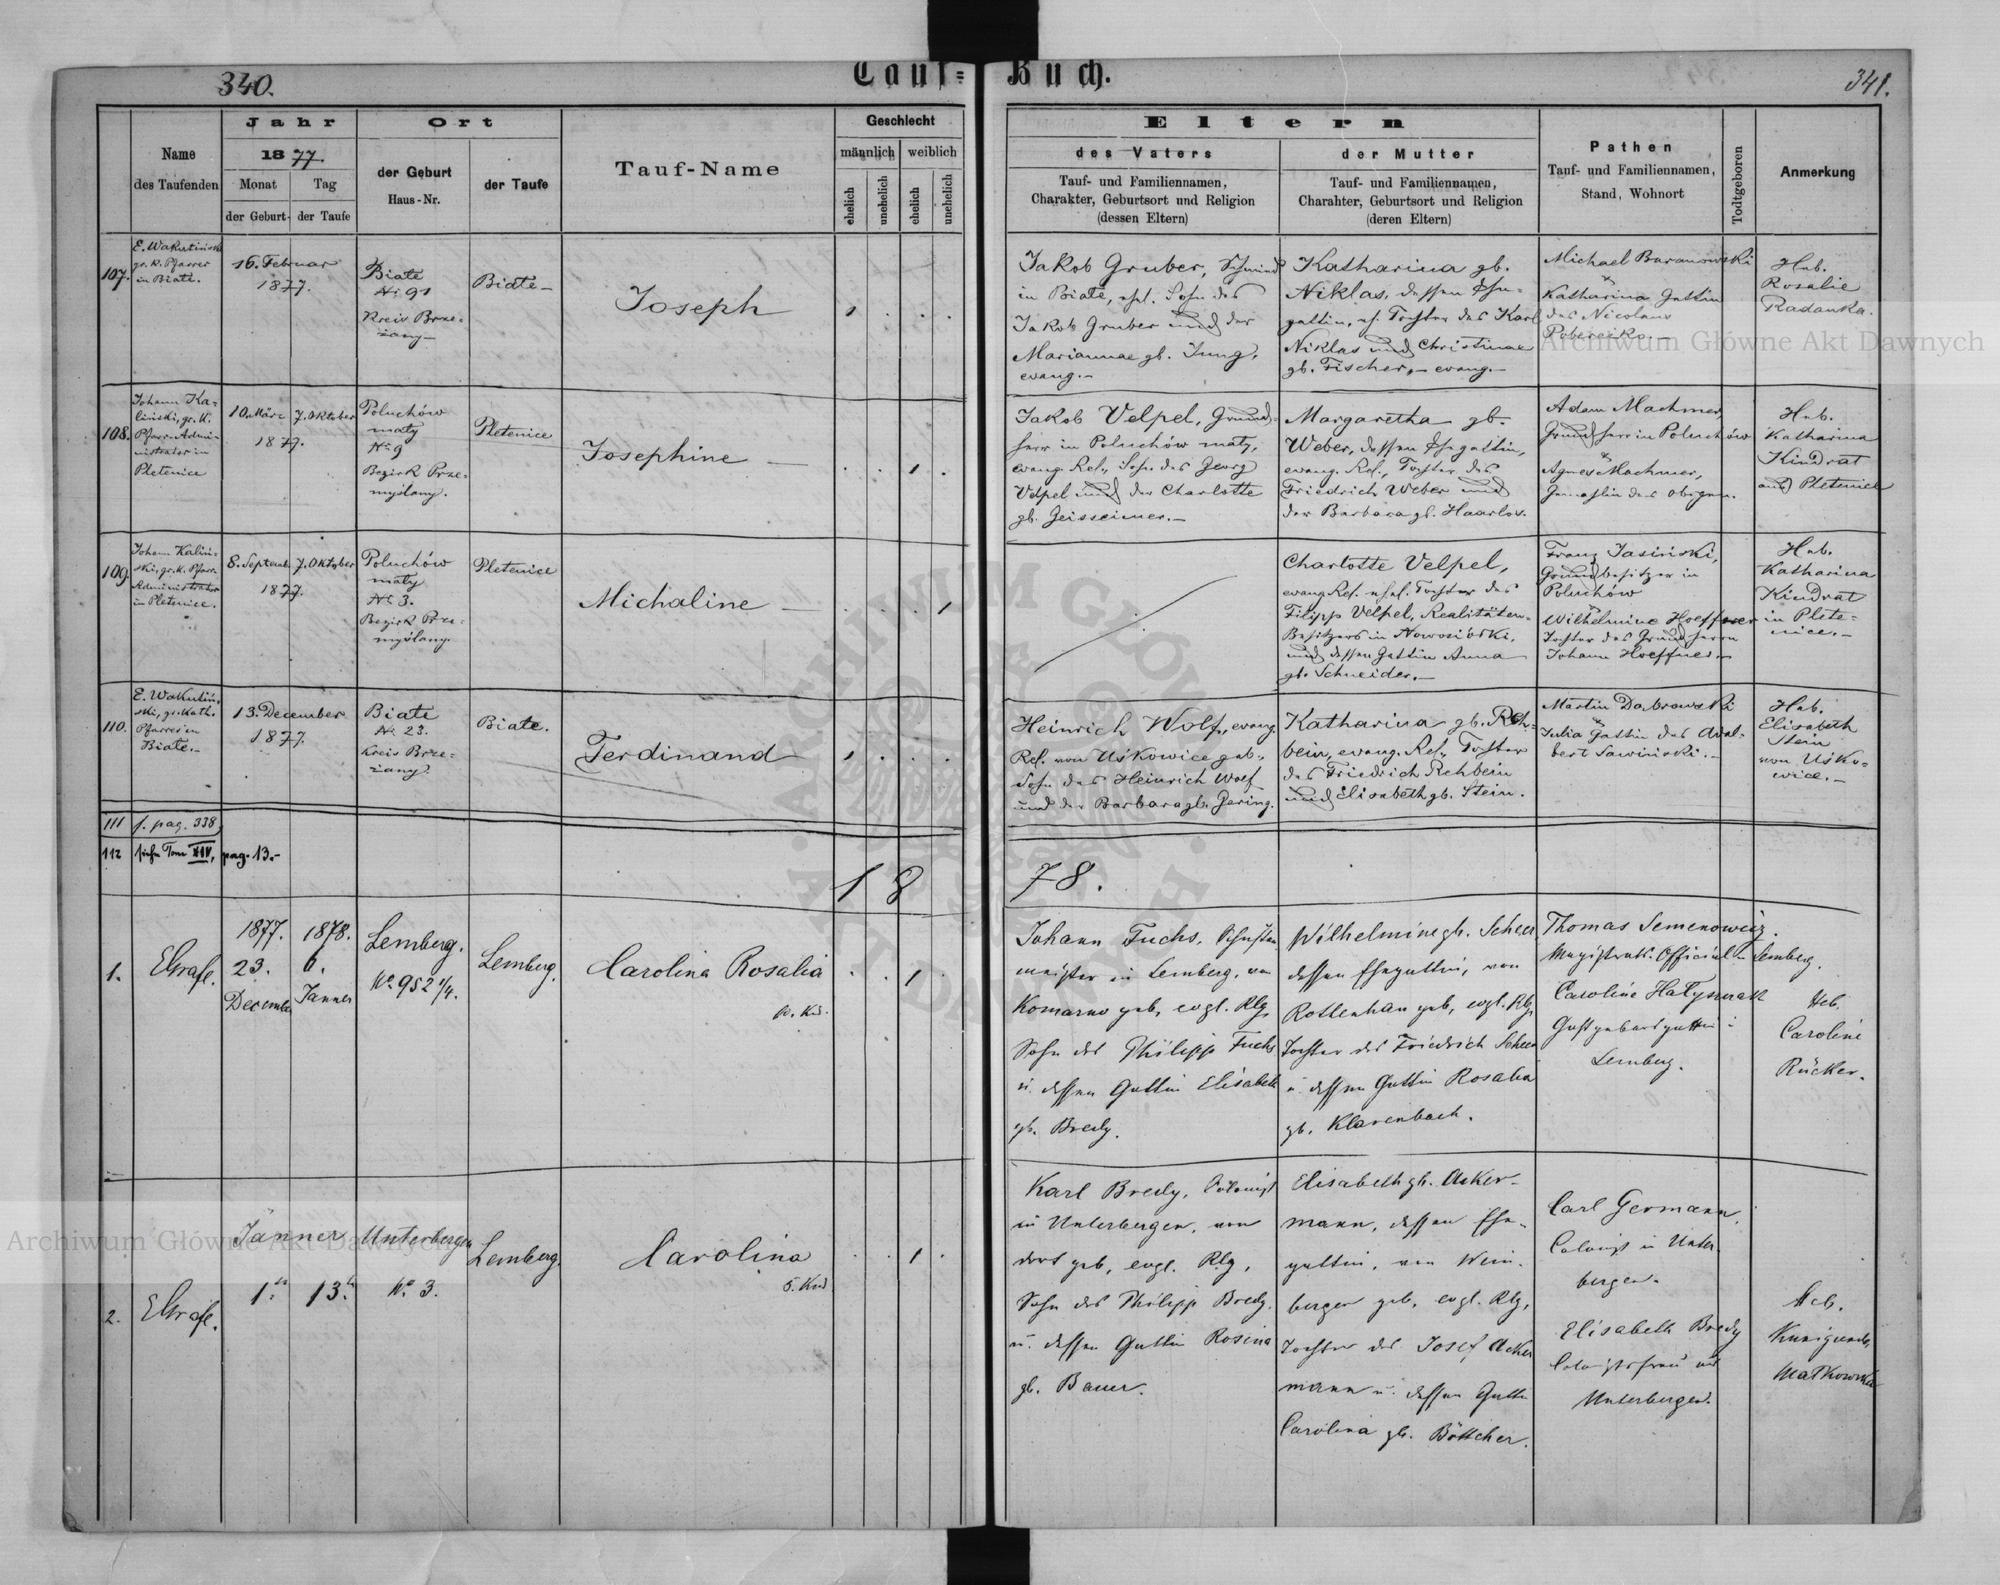 340.
Tauf-Buch.
341.
Name
des Taufenden
Jahr
1877.
Monat
der Geburt
Tag
der Taufe
Ort
der Geburt
Haus-Nr.
der Taufe
Tauf-Name
Geschlecht
männlich
weiblich
ehelich
unehelich
ehelich
unehelich
Eltern
des Vaters
Tauf- und Familiennamen,
Charakter, Geburtsort und Religion
(dessen Eltern)
der Mutter
Tauf- und Familiennamen,
Charahter, Geburtsort und Religion
(deren Eltern)
Pathen
Tauf- und Familiennamen,
Stand, Wohnort
Todtgeboren
Anmerkung
107.
gr. k. Pfarrer
in Białe.
16. Februar
1877.
Białe
No 91
Kreis Brze-
żany
Białe
Joseph
Jakob Gruber, Schmied
in Białe, ehl. Sohn des
Jakob Gruber und der
Mariannae gb. Jung,
evang.
Katharina gb.
Niklas, dessen Ehe-
gattin, eh. Tochter des Karl
Niklas und Christinae
gb. Fischer, evang.
Michael Baranowski
Katharina Gattin
des Nicolaus
Heb.
Rosalie
Radanka.
108.
Johann Ka-
liński, gr. k.
Pfarr-Admi-
nistrator in
Pletenice
10. März
7. Oktober
1877.
Poluchów
mały
No 9
Bezirk Prze-
myślany.
Pletenice
Josephine
Jakob Velpel, Grund-
herr in Poluchów mały,
evang. Ref., Sohn des Georg
Velpel und der Charlotte
Margaretha gb.
Weber, dessen Ehegattin,
evang. Ref., Tochter des
Friedrich Weber und
der Barbara gb.
Adam Machmer
Grundherr in Poluchów
Agnes Machmer,
Gemahlin des obigen.
Heb.
Katharina
Kindrat
aus Pletenice
109.
Johann Kaliń-
ski, gr. k. Pfarr-
Administrator
in Pletenice.
8. Septemb.
7. Oktober
1877.
Poluchów
mały
No 3.
Bezirk Prze-
myślany
Pletenice
Michaline
Charlotte Velpel,
evang. Ref. ehel. Tochter des
Filipp Velpel, Realitäten-
Besitzers in Nowosiółki,
und dessen Gattin Anna
gb. Schneider.
Franz Jasiński,
Grundbesitzer in
Poluchów
Wilhelmine Hoeffner
Tochter des Grundherrn
Johann Hoeffner
Heb.
Katharina
Kindrat
in Plete-
nice.
110.
ski, gr. kath.
Pfarrer in
Białe.
13. December
1877.
Białe
No 23.
Kreis Brze-
żany
Białe.
Ferdinand
Heinrich Wolf, evang.
Ref. von Uśkowice geb.,
Sohn des Heinrich Wolf
und der Barbara gb. Gering.
Katharina gb. Reh-
bein, evang. Ref., Tochter
des Friedrich Rehbein
und Elisabeth gb. Stein.
Martin Dabrowski
Julia Gattin des Adal-
bert Sawiński.
Heb.
Elisabeth
Stein
von Uśko-
wice.
111 s. pag. 338
112 siehe Tom XIV, pag. 13.
1878.
1.
1877.
23.
December
1878.
6.
Jänner
Lemberg.
No 952 1/4.
Lemberg.
Carolina Rosalia
Johann Fuchs, Schuster-
meister in Lemberg, von
Komarno geb, evgl. Rlg,
Sohn des Philipp Fuchs
u. dessen Gattin Elisabeth
gb. Bredy.
Wilhelmine gb. Scheer
dessen Ehegattin, von
Rottenhan geb, evgl. Rlg,
Tochter des Friedrich Scheer
u. dessen Gattin Rosalia
gb. Klarenbach.
Thomas Semenowicz.
Magistrats-Official in Lemberg.
Caroline
Lemberg.
Heb.
Caroline
Rücker.
2.
Jänner
1.
13.
Unterbergen
No 3.
Lemberg.
Carolina
5. Kind
Karl Bredy, Colonist
in Unterbergen, von
dort geb, evgl. Rlg,
Sohn des Philipp Bredy
u. dessen Gattin Rosina
gb. Bauer.
Elisabeth gb. Acker-
mann, dessen Ehe-
gattin, von Wein-
bergen geb, evgl. Rlg,
Tochter des Josef Acker
mann u. dessen Gattin
Carolina gb. Böttcher.
Carl Germann,
Colonist in Unter-
bergen.
Elisabeth Bredy
Colonistsfrau aus
Unterbergen.
Heb.
Kunigunde
Archiwum Główne Akt Dawnych
Archiwum Główne Akt Dawnych